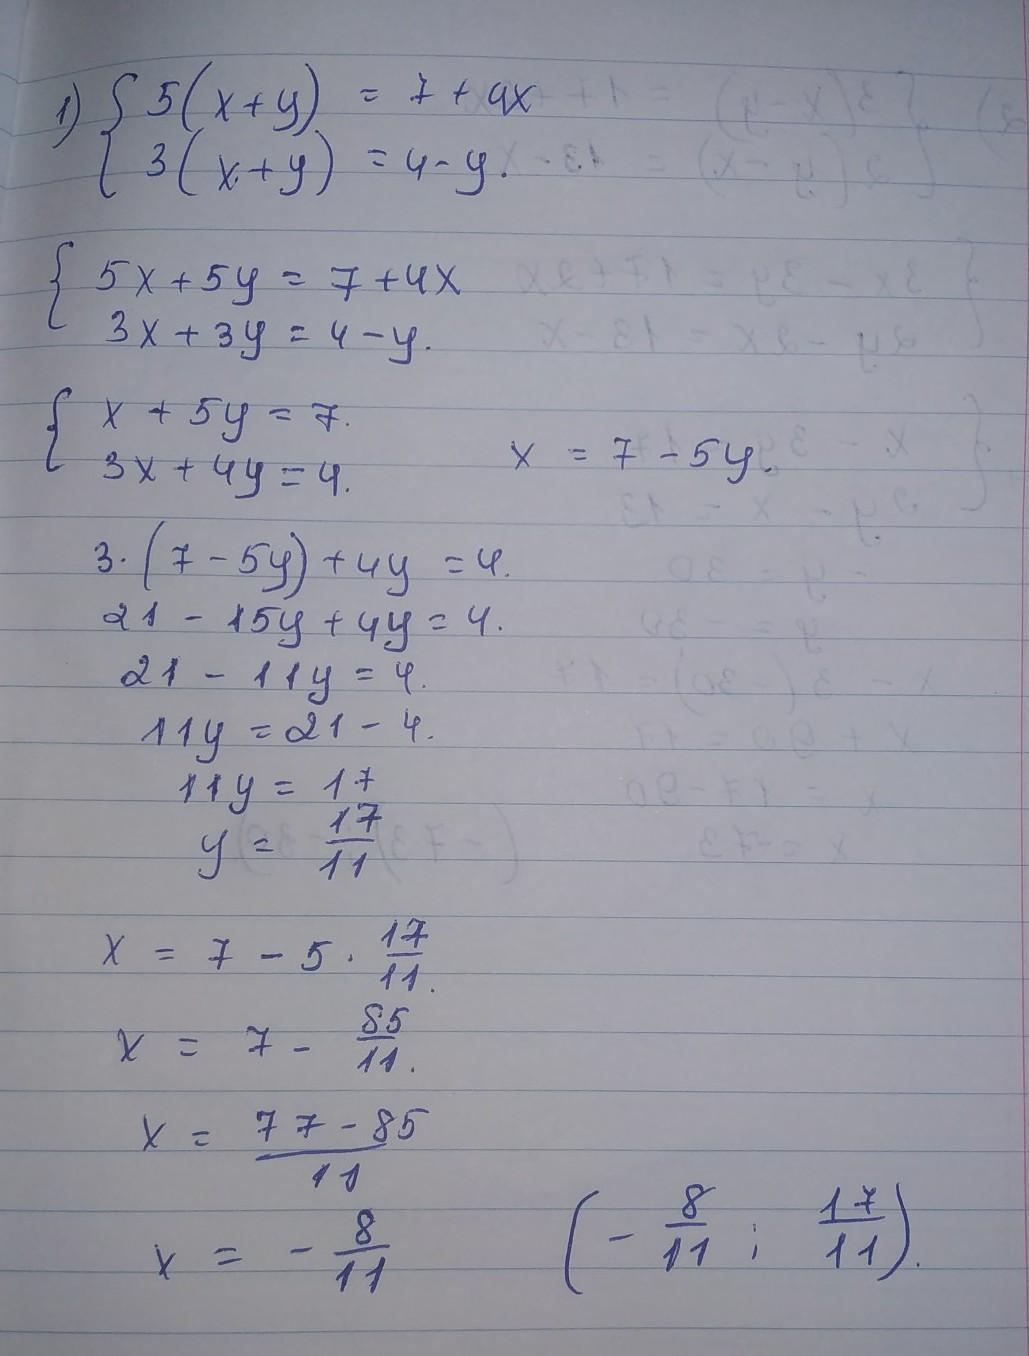 1) { 5(x+y) = 7+4x
{ 3(x+y) = 4-y.
{ 5x+5y = 7+4x
3x+3y = 4-y.
{ x+5y = 7.
3x+4y = 4. x = 7-5y.
3·(7-5y)+4y = 4.
21-15y+4y = 4.
21-11y = 4.
11y = 21-4.
11y = 17
y = 17/11
x = 7-5·17/11.
x = 7-85/11.
x = 77-85/11
x = -8/11 (-8/11; 17/11).